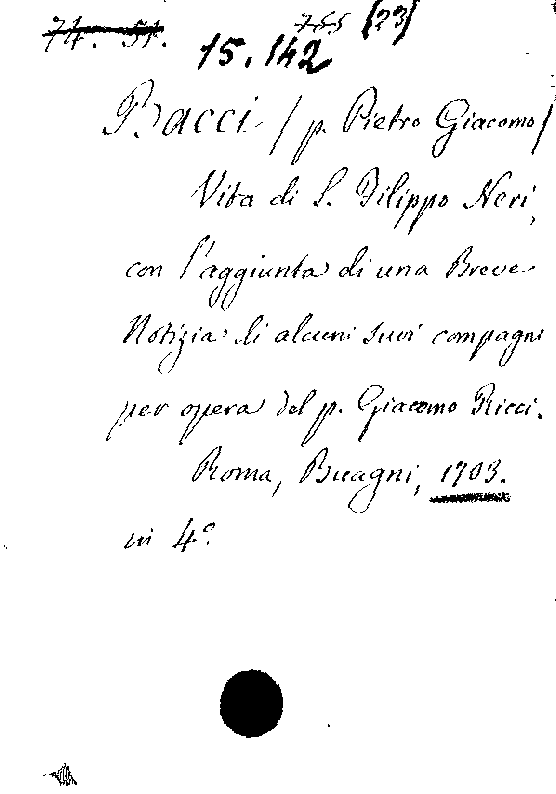 74. 51. 755 (23)
15.142
Bacci / p. Pietro Giacomo/
Vita di S. Filippo Neri,
con l'aggiunta di una Breve
Notizia di alcuni suoi compagni
per opera del p. Giacomo Ricci.
Roma, Buagni, 1703.
in 4°